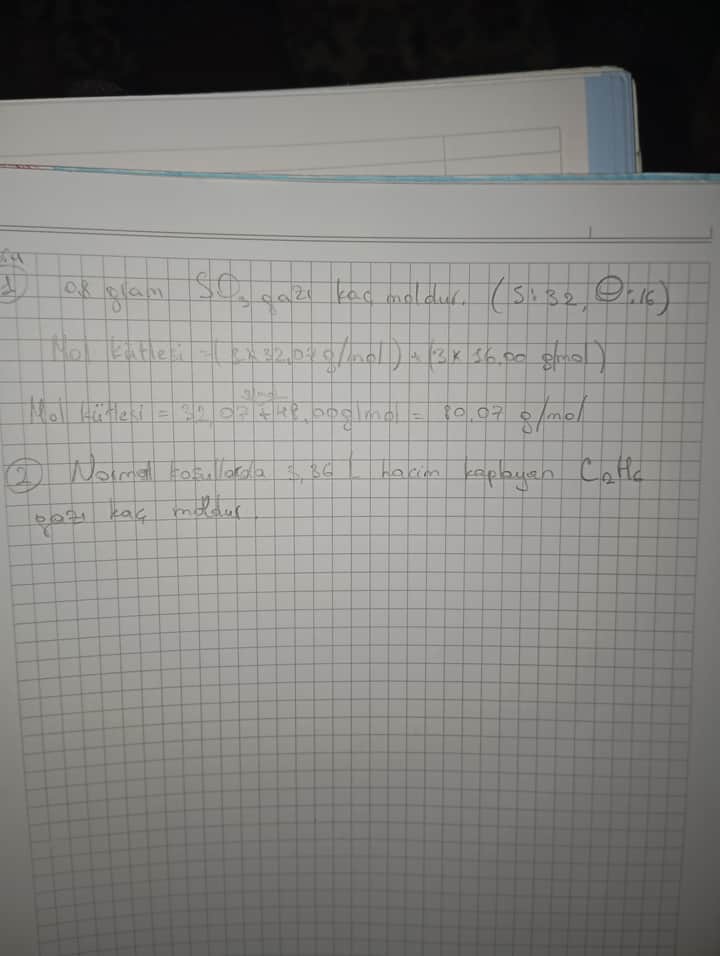 1 0,8 gram SO3 gazı kaç moldur. (S:32, O:16)
Mol kütlesi = (1x32,07 g/mol) + (3x16,00 g/mol)
Mol kütlesi = 32,07 g/mol + 48,00 g/mol = 80,07 g/mol
2 Normal koşullarda 3,36 L hacim kaplayan C2H6
gazı kaç moldur.